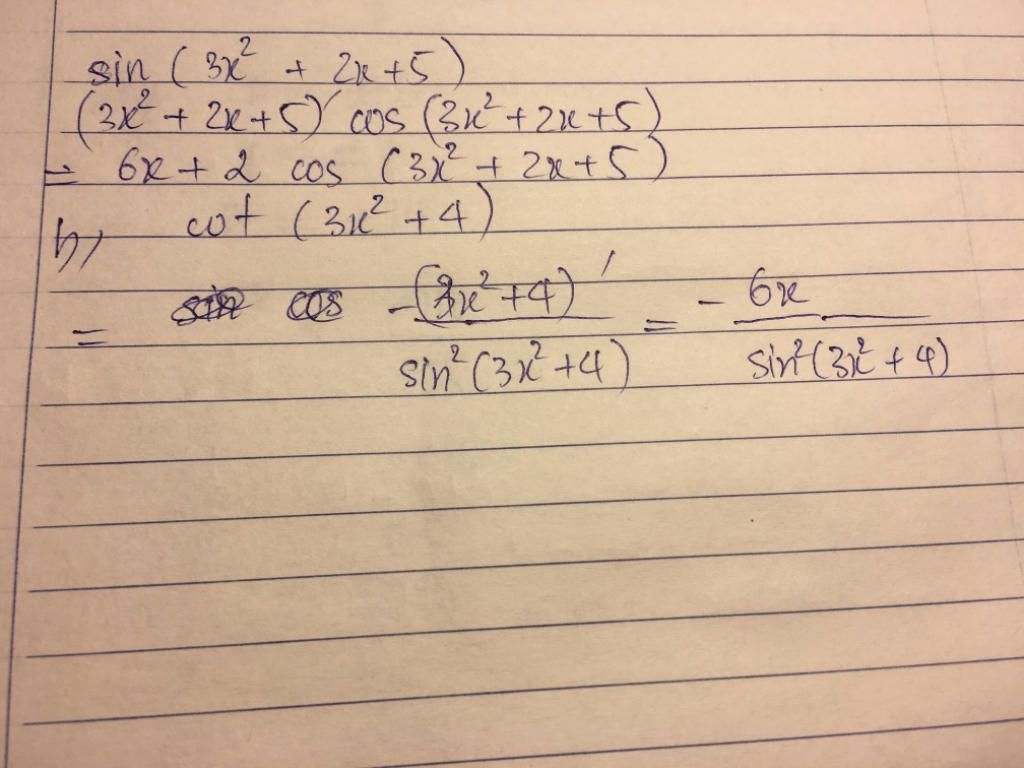 sin (3x² + 2x+5)
(3x² + 2x+5)′ cos (3x²+2x+5)
= 6x + 2 cos (3x² + 2x+5)
b, cot (3x² + 4)
= sin cos -(3x²+4)′ / sin²(3x²+4) = - 6x / sin²(3x² + 4)